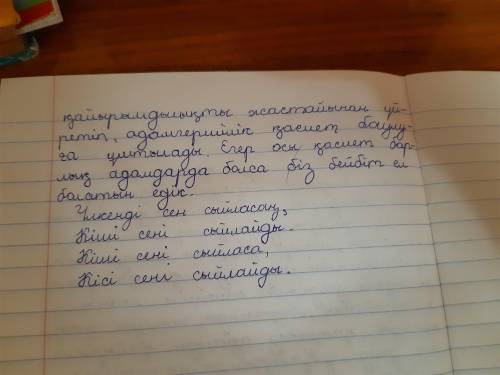 қайырымдылықты жастайынан үй-
ретіп, адамгершілік қасиет баулу-
ға ұмтылады. Егер осы қасиет бар-
лық адамдарда болса біз бейбіт ел
болатын едік.
Үлкенді сен сыйласаң,
Кіші сені сыйлайды.
Кіші сені сыйласа,
Кісі сені сыйлайды.